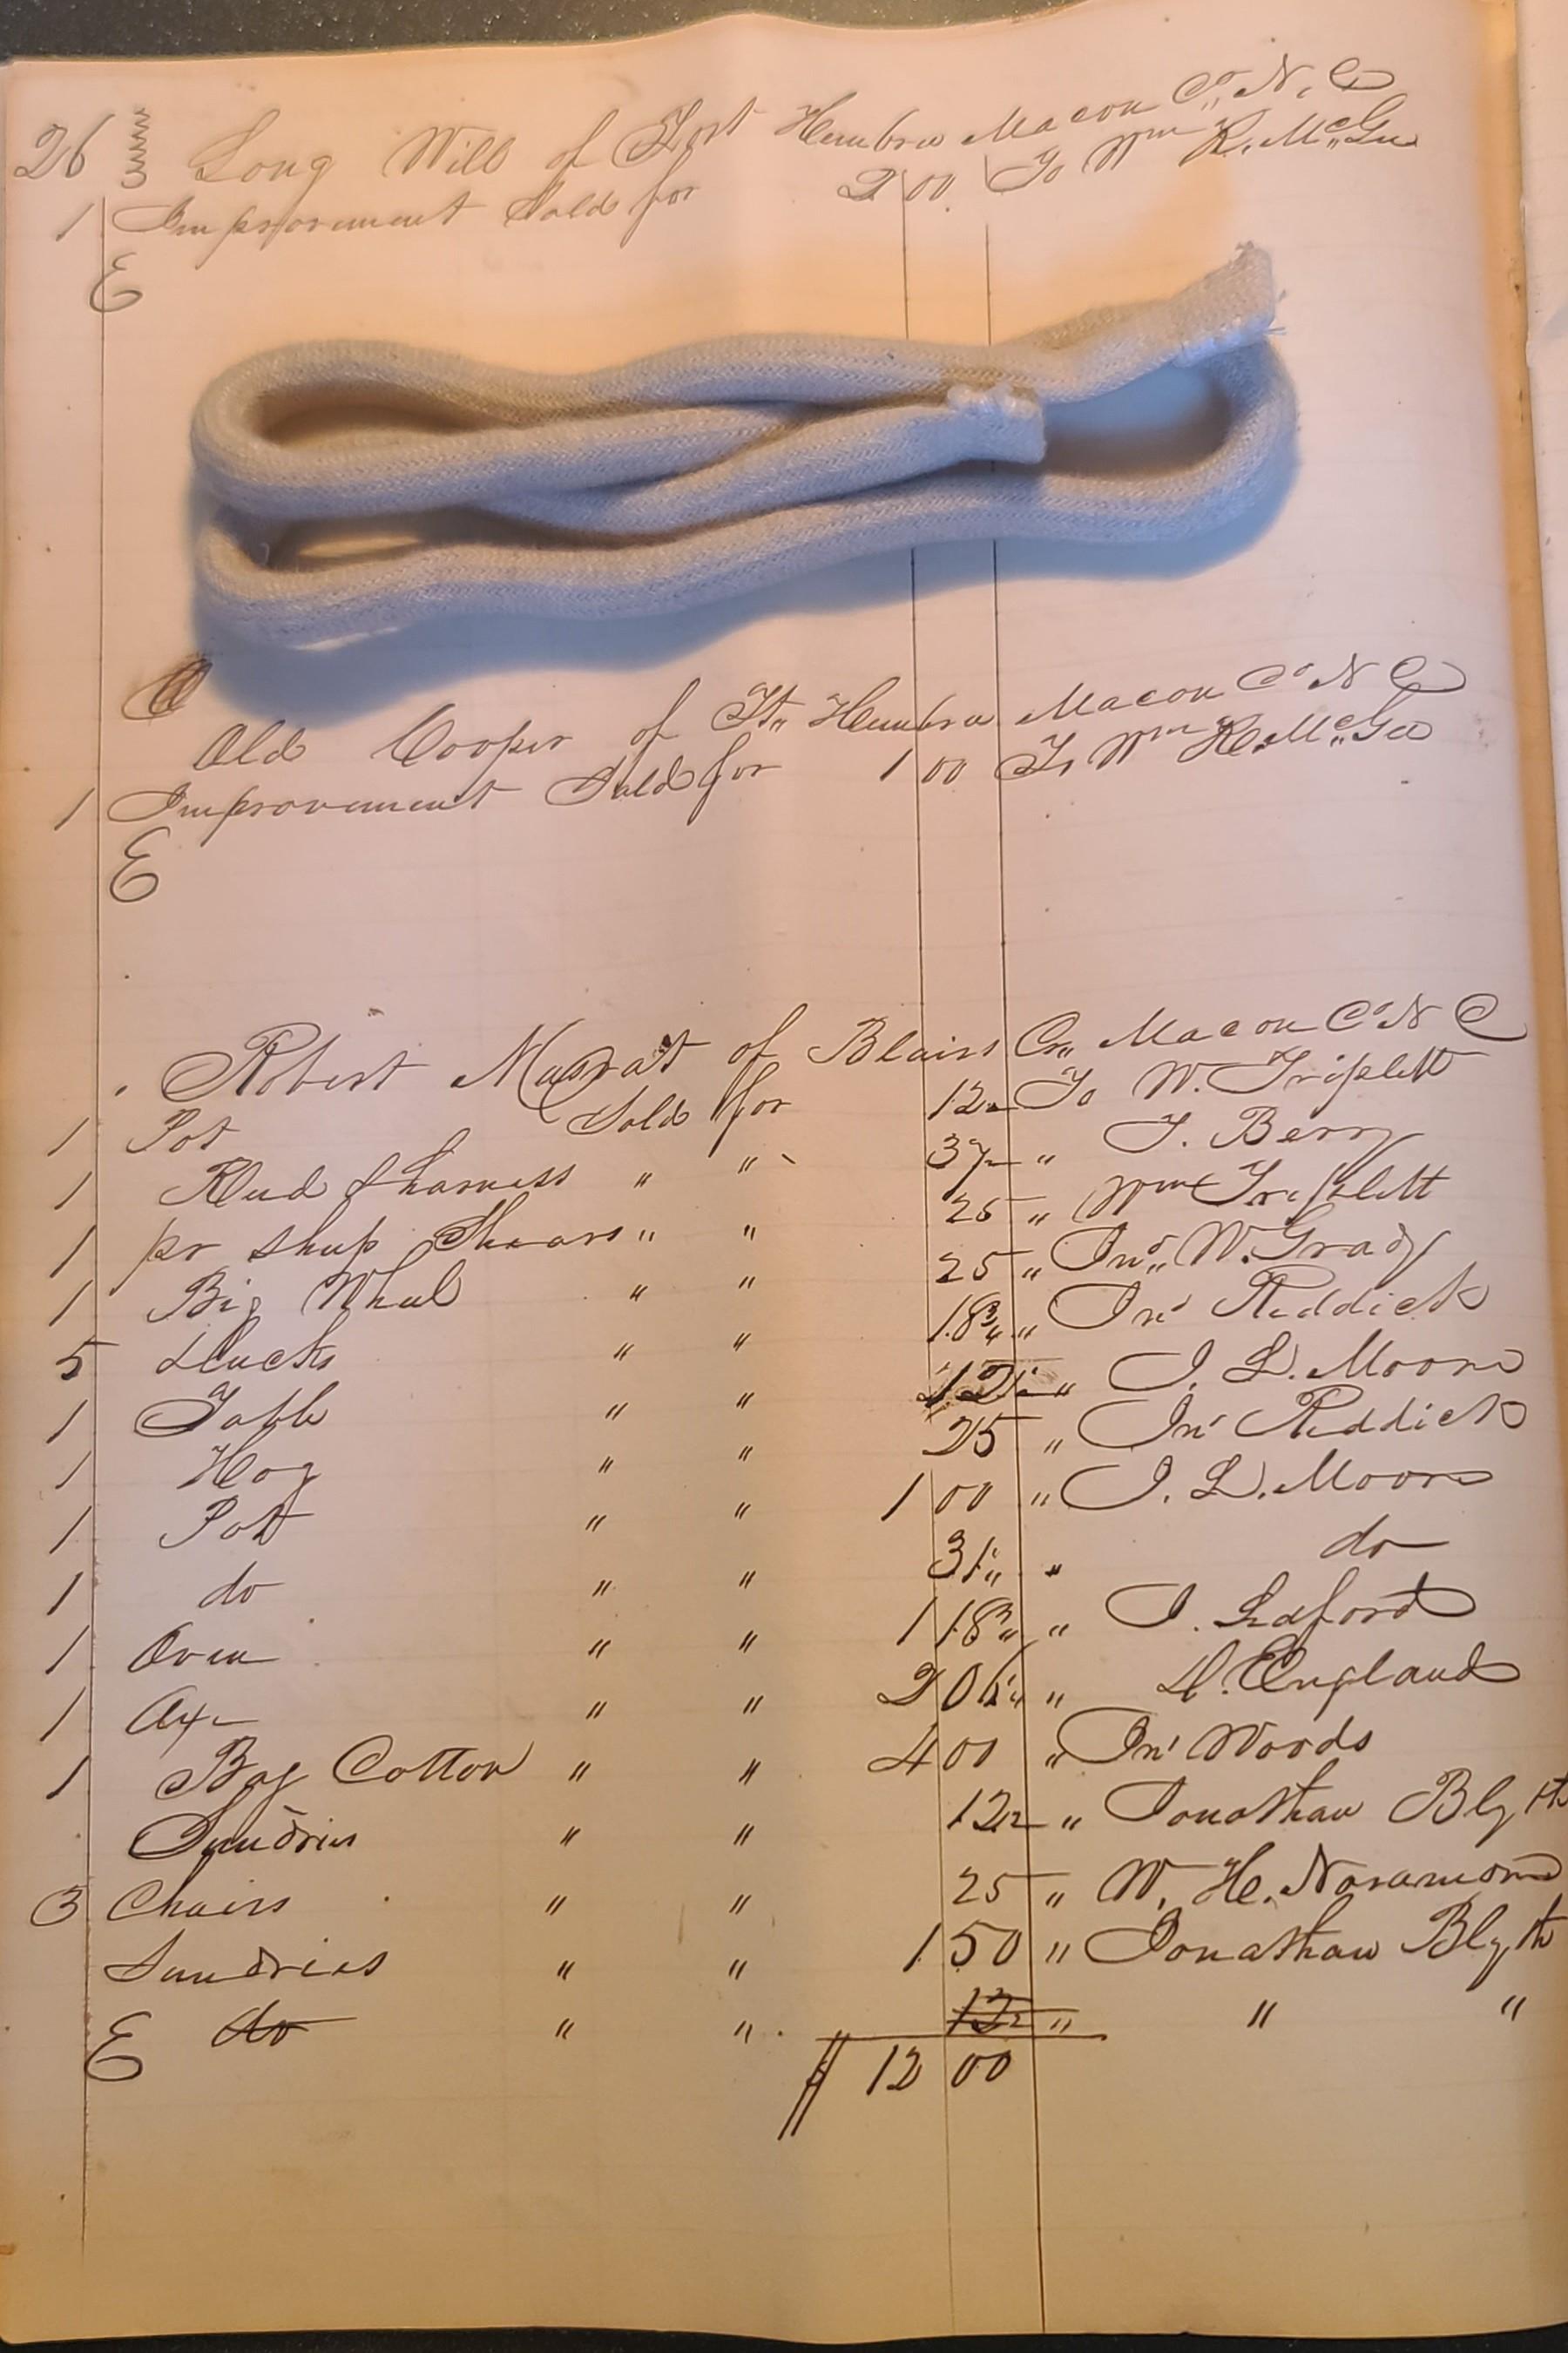 26 Long Will of Fort Hembra Macon Co,, N. C
1 Improvement Sold for 2 00 To Wm R. Mc,,Gee
E
Old Cooper of Ft,, Hembra Macon Co N C
1 Improvement Sold for 1 00 To Wm H. Mc,,Gee
E
Robert of Blairs Cr,, Macon Co N C
1 Pot Sold for 12 To W. Triplett
1 Reed & harness " " 37 " J. Berry
1 pr Sheep Shears " " 25 " Wm Triplett
1 Big Wheel " " 25 " Jno,, W. Grady
5 Ducks " " 18¾ " Jno Reddick
1 Table " " " J. L. Moore
1 Hog " " 25 " Jno Reddick
1 Pot " " 1 00 " J. L. Moore
1 do " " 31¼ " do
1 Oven " " 1 18¾ " J. Ledford
1 Axe " " 2 06¼ " D. England
1 Bag Cotton " " 4 00 " Jno Woods
Sundries " " 12½ " Jonathan Blyth
3 Chairs " " 25 " W. H.
Sundries " " 1 50 " Jonathan Blyth
E do " " 12½ " " "
$ 12 00